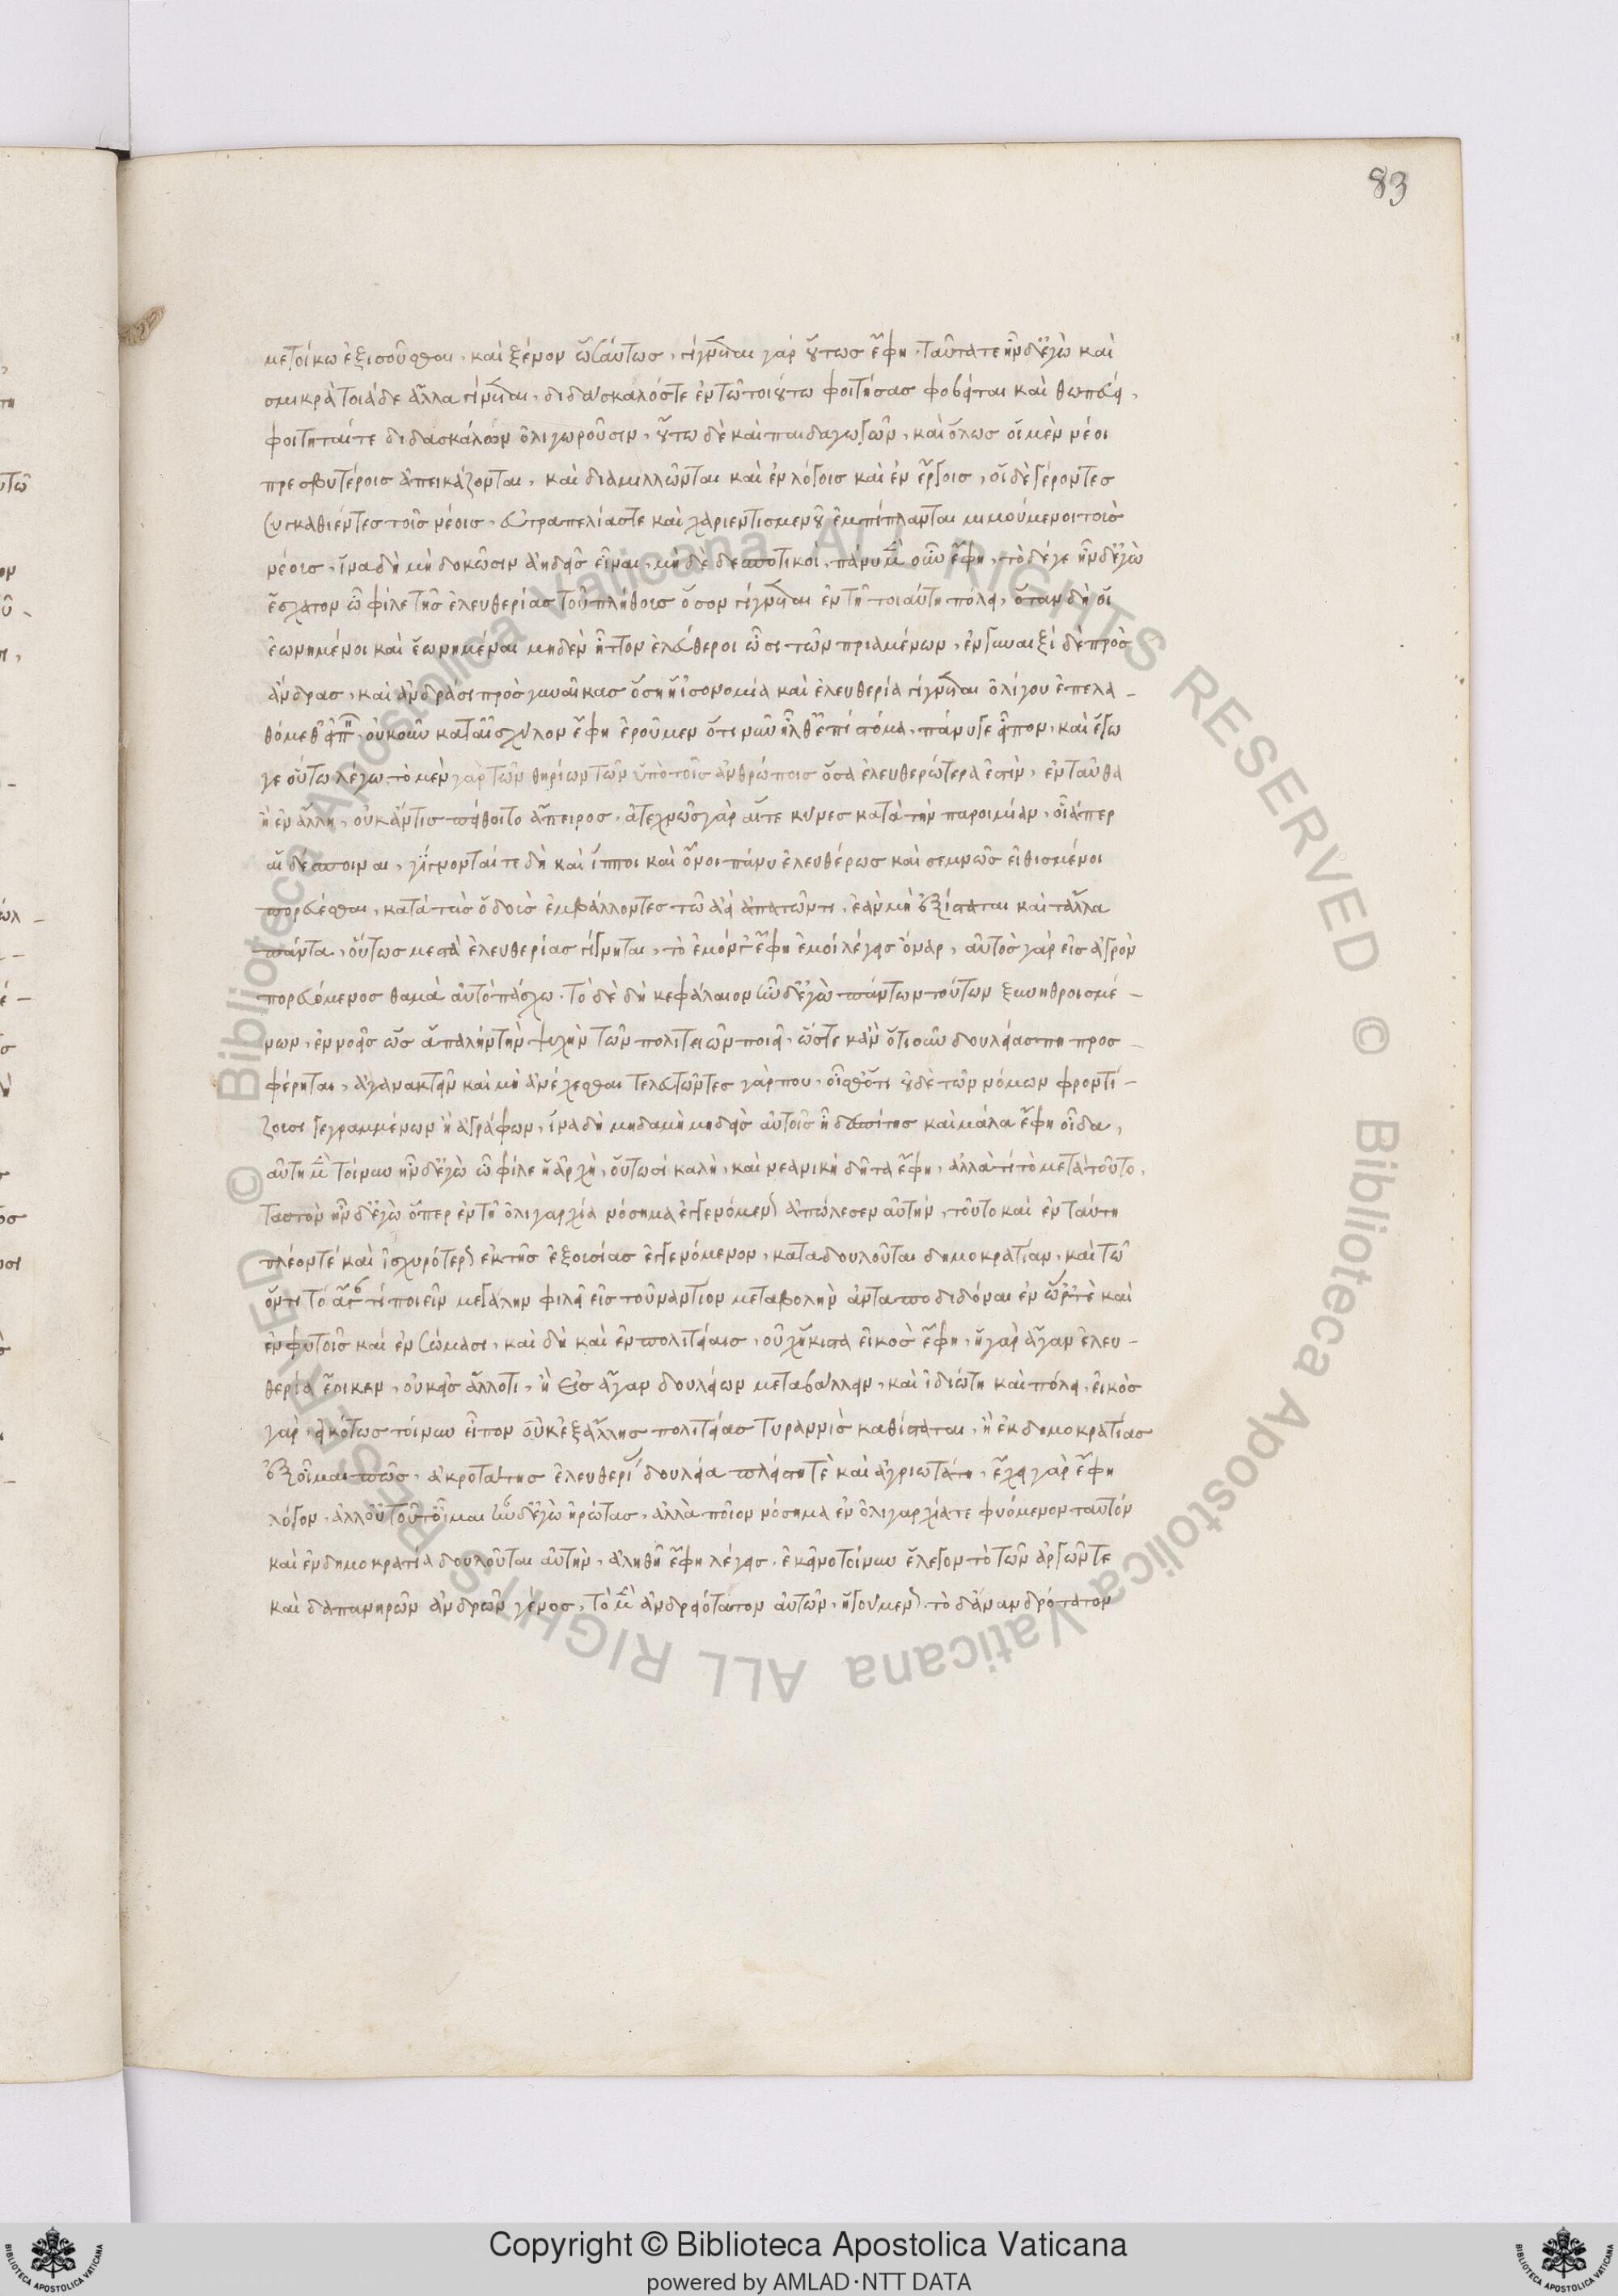 83
μετοίκω ἐξισοῦσθαι, καὶ ξένον ὡσαύτως, γίγνεται γὰρ οὕτως ἔφη, ταῦτά τε ἦν δ' ἐγὼ καὶ
σμικρὰ τοιάδε ἄλλα γίγνεται, διδάσκαλός τε ἐν τῶ τοιούτω φοιτήσας φοβεῖται καὶ θωπεύει,
φοιτηταί τε διδασκάλων ὀλιγωροῦσιν, οὕτω δὲ καὶ παιδαγωγῶν, καὶ ὅλως οἱ μὲν νέοι
πρεσβυτέροις ἀπεικάζονται, καὶ διαμιλλῶνται καὶ ἐν λόγοις καὶ ἐν ἔργοις, οἱ δὲ γέροντες
συγκαθιέντες τοῖς νέοις, εὐτραπελίας τε καὶ χαριεντισμοῦ ἐμπίπλανται μιμούμενοι τοὺς
νέους, ἵνα δὴ μὴ δοκῶσιν ἀηδεῖς εἶναι, μηδὲ δεσποτικοί, πάνυ μὲν οὖν ἔφη, τὸ δέ γε ἦν δ' ἐγὼ
ἔσχατον ὦ φίλε τῆς ἐλευθερίας τοῦ πλήθους ὅσον γίγνεται ἐν τῆ τοιαύτη πόλει, ὅταν δὴ οἱ
ἐωνημένοι καὶ ἐωνημέναι μηδὲν ἧττον ἐλεύθεροι ὦσι τῶν πριαμένων, ἐν γυναιξὶ δὲ πρὸς
ἄνδρας, καὶ ἀνδράσι πρὸς γυναῖκας ὅση ἡ ἰσονομία καὶ ἐλευθερία γίγνεται ὀλίγου ἐπελα-
θόμεθ' εἰπεῖν, οὐκοῦν κατ' αἰσχύλον ἔφη ἐροῦμεν ὅτι νῦν ἦλθ' ἐπὶ στόμα, πάνυ γε εἶπον, καὶ ἔγω
γε οὕτω λέγω, τὸ μὲν γὰρ τῶν θηρίων τῶν ὑπὸ τοῖς ἀνθρώποις ὅσα ἐλευθερώτερά ἐστιν, ἐνταῦθα
ἢ ἐν ἄλλη, οὐκ ἄν τις πείθοιτο ἄπειρος, ἀτεχνῶς γὰρ αἵ τε κύνες κατὰ τὴν παροιμίαν, οἷάπερ
αἱ δέσποιναι, γίγνονταί τε δὴ καὶ ἵπποι καὶ ὄνοι πάνυ ἐλευθέρως καὶ σεμνῶς εἰθισμένοι
πορεύεσθαι, κατὰ τὰς ὁδοὺς ἐμβάλλοντες τῶ ἀεὶ ἀπαντῶντι, ἐὰν μὴ ἐξίσταται καὶ τἆλλα
πάντα, οὕτως μεστὰ ἐλευθερίας γίγνηται, τὸ ἐμόν γ' ἔφη ἐμοὶ λέγεις ὄναρ, αὐτὸς γὰρ εἰς ἀγρὸν
πορευόμενος θαμὰ αὐτὸ πάσχω. τὸ δὲ δὴ κεφάλαιον ἦν δ' ἐγὼ πάντων τούτων ξυνηθροισμέ-
νων, ἐννοεῖς ὡς ἁπαλὴν τὴν ψυχὴν τῶν πολιτειῶν ποιεῖ, ὥστε κἂν ὁτιοῦν δουλείας τη προσ-
φέρηται, ἀγανακτεῖν καὶ μὴ ἀνέχεσθαι τελευτῶντες γάρ που, οἶσθ' ὅτι οὐδὲ τῶν νόμων φροντί-
ζουσι γεγραμμένων ἢ ἀγράφων, ἵνα δὴ μηδαμῆ μηδεὶς αὐτοῖς ἦ δεσπότης καὶ μάλα ἔφη οἶδα,
αὕτη μὲν τοίνυν ἦν δ' ἐγὼ ὦ φίλε ἡ ἀρχὴ, οὑτωσὶ καλὴ, καὶ νεανικὴ δῆτα ἔφη, ἀλλὰ τί τὸ μετὰ τοῦτο,
ταυτὸν ἦν δ' ἐγὼ ὅπερ ἐν τῆ ὀλιγαρχία νόσημα ἐγγενόμενον ἀπώλεσεν αὐτὴν, τοῦτο καὶ ἐν ταύτη
πλέον τὲ καὶ ἰσχυρότερον ἐκ τῆς ἐξουσίας ἐγγενόμενον, καταδουλοῦται δημοκρατίαν, καὶ τῶ
ὄντι τὸ ἄγαν τί ποιεῖν μεγάλην φιλεῖ εἰς τοὐναντίον μεταβολὴν ἀνταποδιδόναι ἐν ὥραις τὲ καὶ
ἐν φυτοῖς καὶ ἐν σώμασι, καὶ δὴ καὶ ἐν πολιτείαις, οὐχ ἥκιστα εἰκὸς ἔφη, ἡ γὰρ ἄγαν ἐλευ-
θερία ἔοικεν, οὐκ εἰς ἄλλο τι, ἢ εἰς ἄγαν δουλείαν μεταβάλλειν, καὶ ἰδιώτη καὶ πόλει, εἰκὸς
γάρ, εἰκότως τοίνυν εἶπον οὐκ ἐξ ἄλλης πολιτείας τυραννὶς καθίσταται, ἢ ἐκ δημοκρατίας
ἐξ οἶμαι πῶς, ἀκροτάτης ἐλευθερίας δουλεία πλείστη τὲ καὶ ἀγριωτάτη, ἔχει γὰρ ἔφη
λόγον, ἀλλ' οὐ τοῦτ' οἶμαι ἦν δ' ἐγὼ ἠρώτας, ἀλλὰ ποῖον νόσημα ἐν ὀλιγαρχία τε φυόμενον ταυτόν
καὶ ἐν δημοκρατία δουλοῦται αὐτὴν, ἀληθῆ ἔφη λέγεις, ἐκεῖνο τοίνυν ἔλεγον τὸ τῶν ἀργῶν τε
καὶ δαπανηρῶν ἀνδρῶν γένος, τὸ μὲν ἀνδρειότατον αὐτῶν, ἡγούμενον, τὸ δ' ἀνανδρότατον